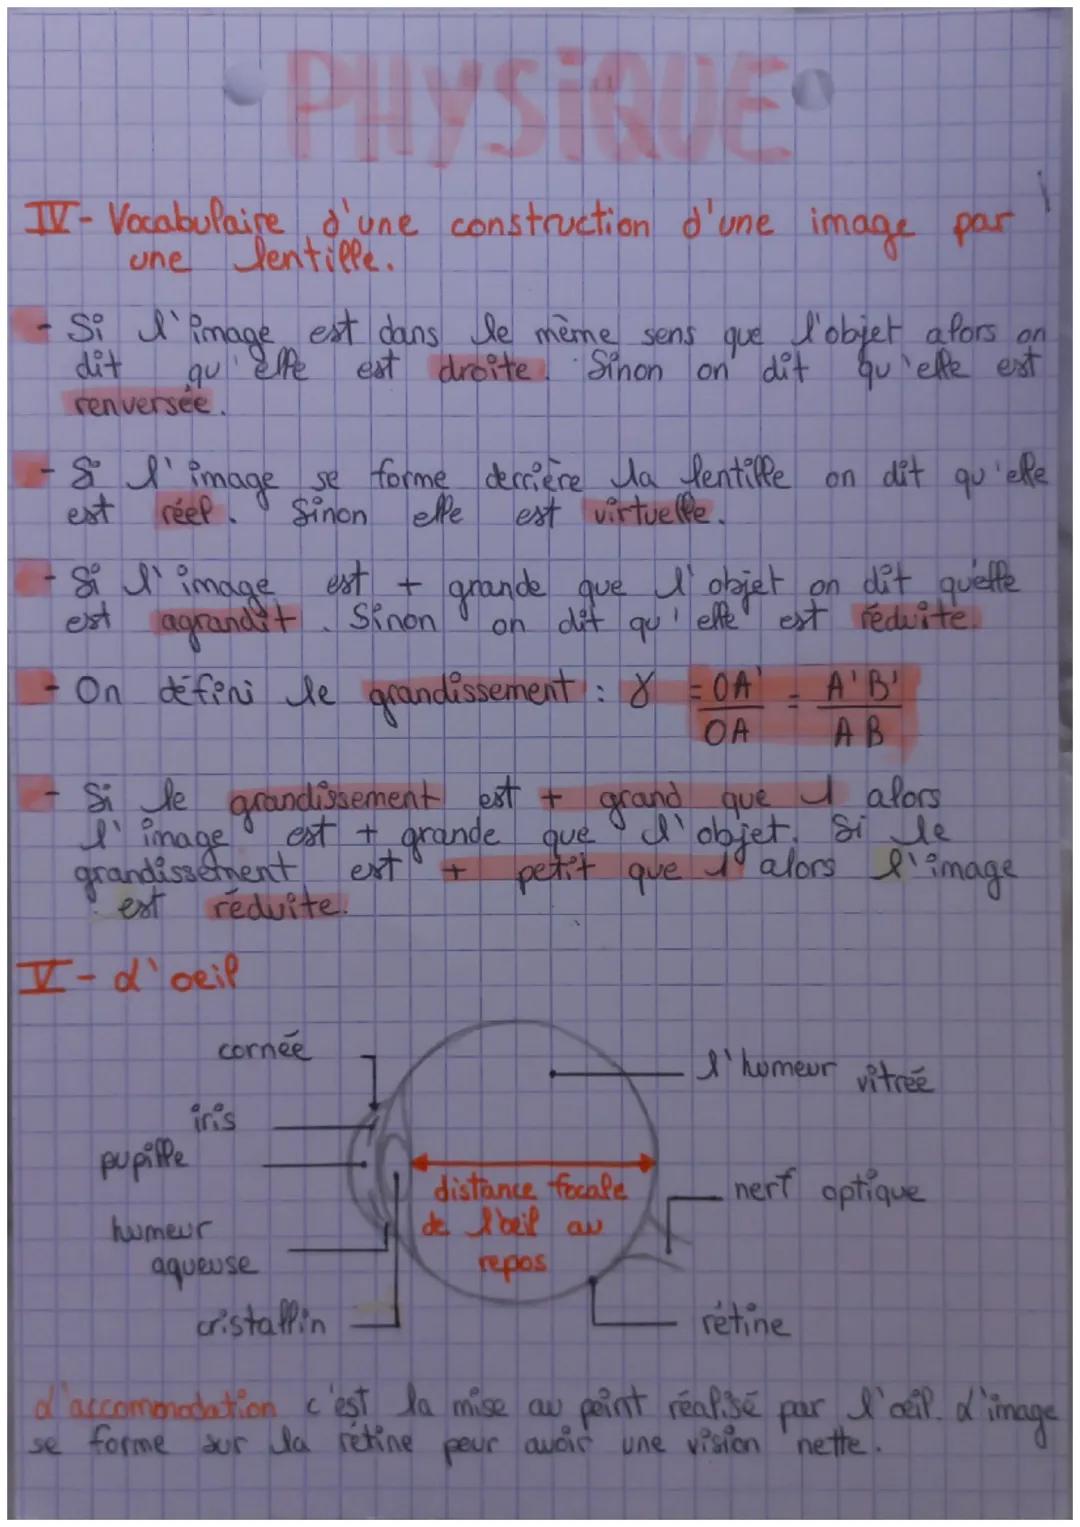 PHYSIQUE
IV- Vocabulaire d'une construction d'une image par
une lentille.
- Si l'image est dans le même sens que l'objet alors on
dit qu'elle est droite. Sinon on dit qu'elle est
renversée.
- Si l'image se forme derrière la lentille on dit qu'elle
est réel. Sinon elle est virtuelle.
- Si l'image est + grande que l'objet on dit qu'elle
est agrandit. Sinon on dit qu'elle est réduite.
- On défini le grandissement : γ = OA'/OA = A'B'/AB
- Si le grandissement est + grand que 1 alors
l'image est + grande que l'objet. Si le
grandissement est + petit que 1 alors l'image
est réduite.
V- L'oeil
cornée
l'humeur vitrée
iris
pupille
distance focale
de l'oeil au
repos
nerf optique
humeur
aqueuse
cristallin
rétine
L'accommodation c'est la mise au point réalisé par l'oeil. L'image
se forme sur la rétine pour avoir une vision nette.